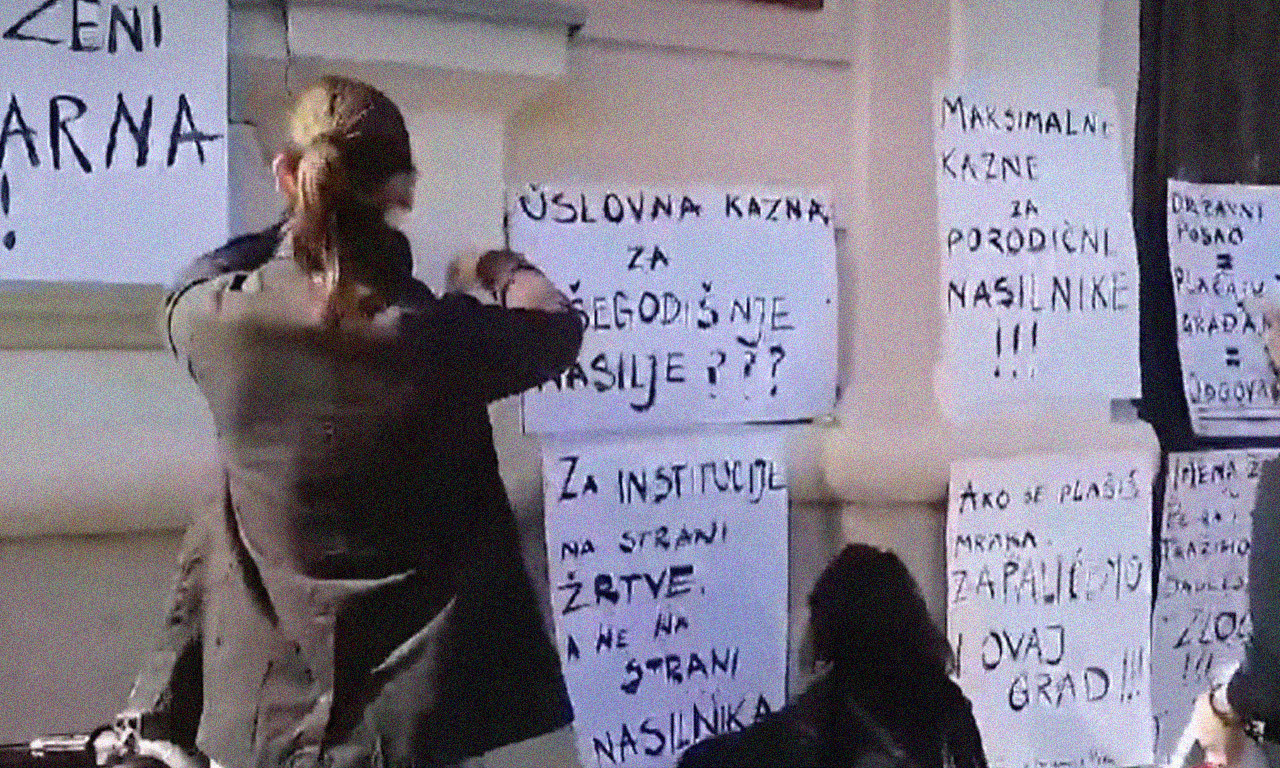 ŽENI
ARNA
!
USLOVNA KAZNA
ZA
ŠEGODIŠNJE
NASILJE ???
ZA INSTITUCIJE
NA STRANI
ŽRTVE,
A NE NA
STRANI
NASILNIKA
MAKSIMALNE
KAZNE
ZA
PORODIČNE
NASILNIKE
!!!
AKO SE PLAŠIŠ
MRAKA
ZAPALIĆEMO
I OVAJ
GRAD!!!
DRŽAVNI
POSAO
=
PLAĆAJU
GRAĐA
=
ODGOVA
IMENA
TRAŽIMO
ZLOČ
!!!